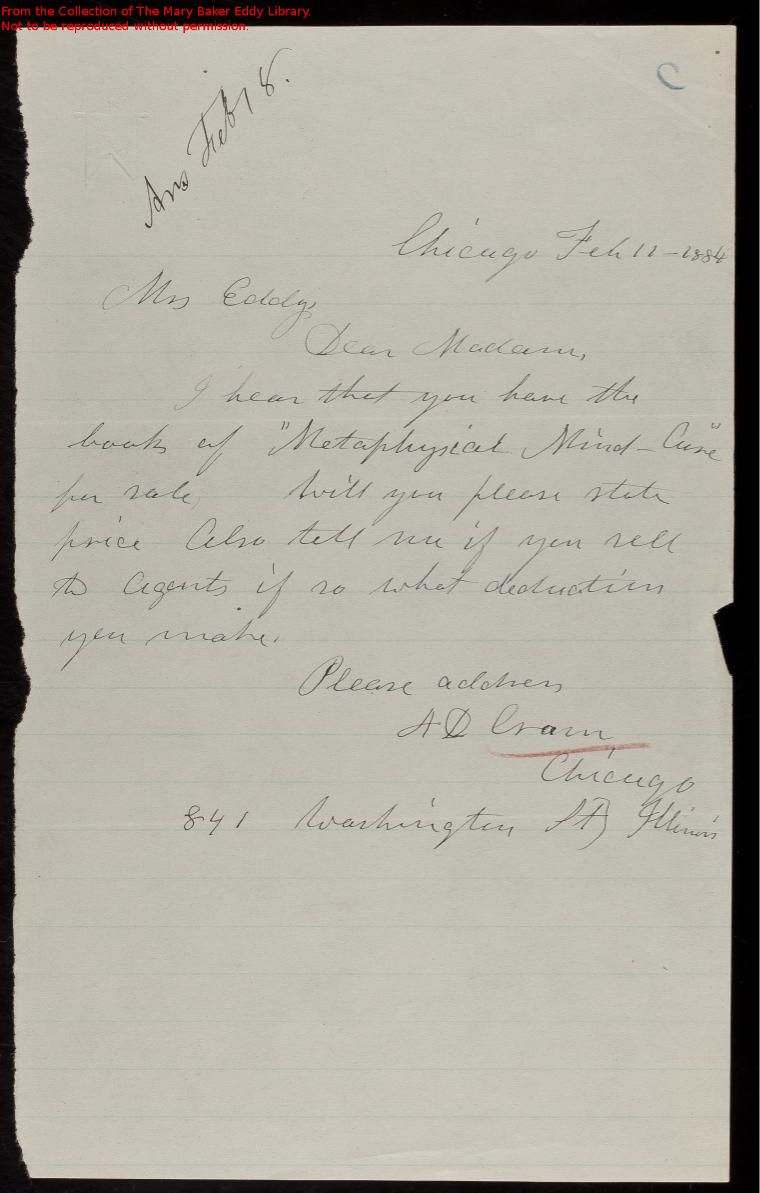 From the Collection of The Mary Baker Eddy Library.
Not to be reproduced without permission.
C
Ans Feb 18.
Chicago Feb 11-1884
Mrs Eddy,
Dear Madam,
I hear that you have the
book of "Metaphysical Mind-Cure"
for sale, Will you please state
price Also tell me if you sell
to Agents if so what deduction
you make.
Please address
A D Cram,
Chicago
841 Washington St, Illinois